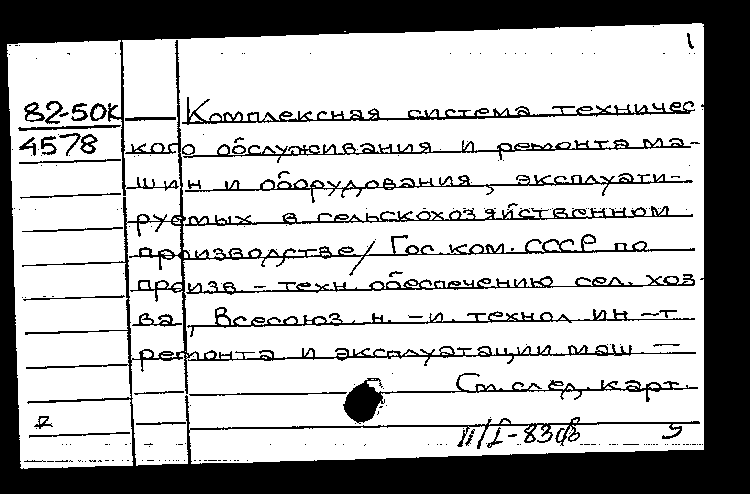 1
82-50К Комплексная система техничес-
4578 кого обслуживания и ремонта ма-
шин и оборудования, эксплуати-
руемых в сельскохозяйственном
производстве/ Гос. ком. СССР по
произв.-техн. обеспечению сел. хоз-
ва, Всесоюз. н.-и. технол. ин-т
ремонта и эксплуатации маш. –
См. след. карт.
II/I-83